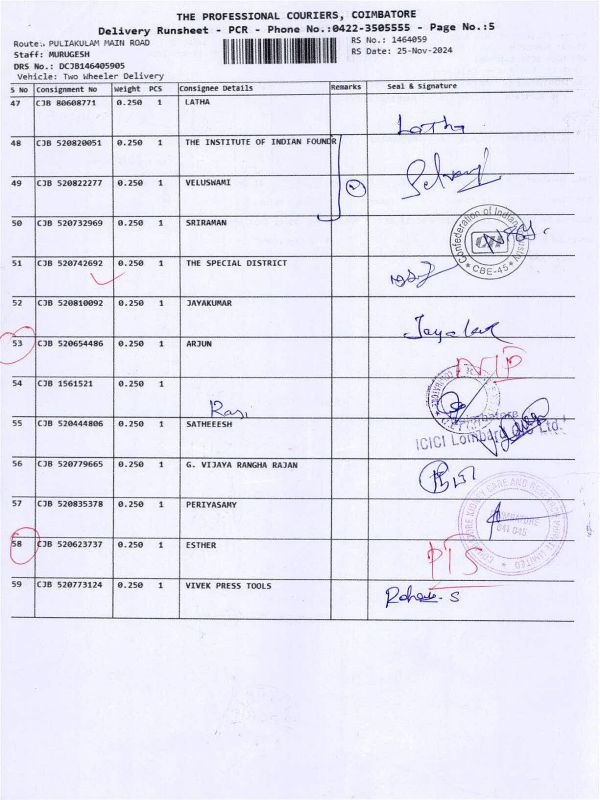 THE PROFESSIONAL COURIERS, COIMBATORE
Delivery Runsheet - PCR - Phone No.:0422-3505555 - Page No.:5
Route: PULIAKULAM MAIN ROAD RS No.: 1464059
Staff: MURUGESH RS Date: 25-Nov-2024
DRS No.: DCJB146405905
Vehicle: Two Wheeler Delivery
S No Consignment No Weight PCS Consignee Details Remarks Seal & Signature
47 CJB 80608771 0.250 1 LATHA
Latha
48 CJB 520820051 0.250 1 THE INSTITUTE OF INDIAN FOUNDR
49 CJB 520822277 0.250 1 VELUSWAMI
50 CJB 520732969 0.250 1 SRIRAMAN
Confederation of Indian Industry
CII
* CBE-45 *
51 CJB 520742692 0.250 1 THE SPECIAL DISTRICT
52 CJB 520810092 0.250 1 JAYAKUMAR
53 CJB 520654486 0.250 1 ARJUN
54 CJB 1561521 0.250 1
Ravi
Coimbatore
ICICI Lombard GIC Ltd.
55 CJB 520444806 0.250 1 SATHEEESH
56 CJB 520779665 0.250 1 G. VIJAYA RANGHA RAJAN
57 CJB 520835378 0.250 1 PERIYASAMY
COIMBATORE
641 045
58 CJB 520623737 0.250 1 ESTHER
PTS
59 CJB 520773124 0.250 1 VIVEK PRESS TOOLS